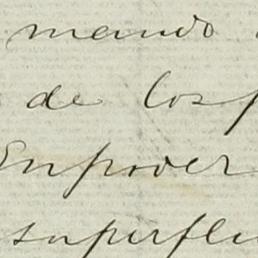 mando
de los p
En poder
superflu